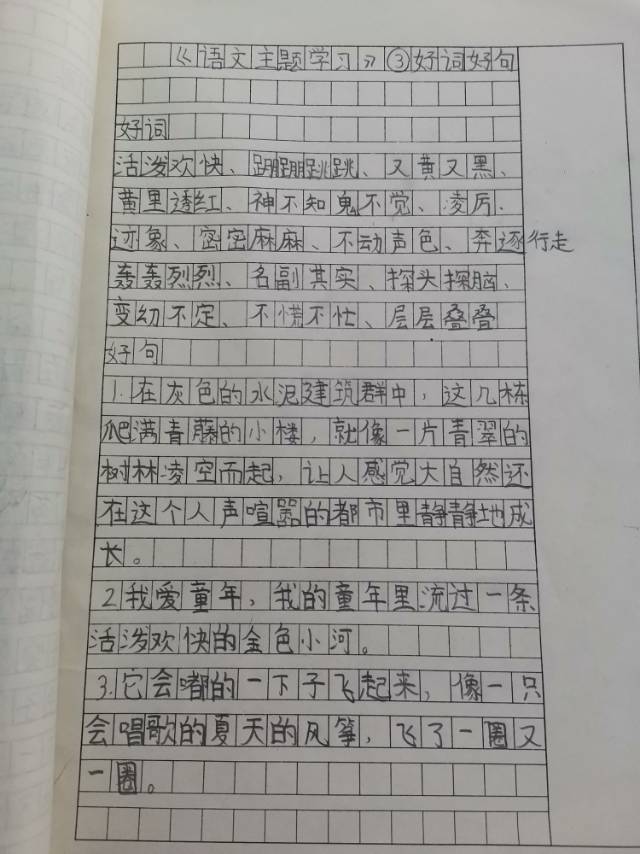 《语文主题学习》③好词好句
好词
活泼欢快、蹦蹦跳跳、又黄又黑、
黄里透红、神不知鬼不觉、凌厉、
迹象、密密麻麻、不动声色、奔逐行走
轰轰烈烈、名副其实、探头探脑、
变幻不定、不慌不忙、层层叠叠
好句
1.在灰色的水泥建筑群中,这几栋
爬满青藤的小楼,就像一片青翠的
树林凌空而起,让人感觉大自然还
在这个人声喧嚣的都市里静静地成
长。
2我爱童年,我的童年里流过一条
活泼欢快的金色小河。
3.它会嘟的一下子飞起来,像一只
会唱歌的夏天的风筝,飞了一圈又
一圈。